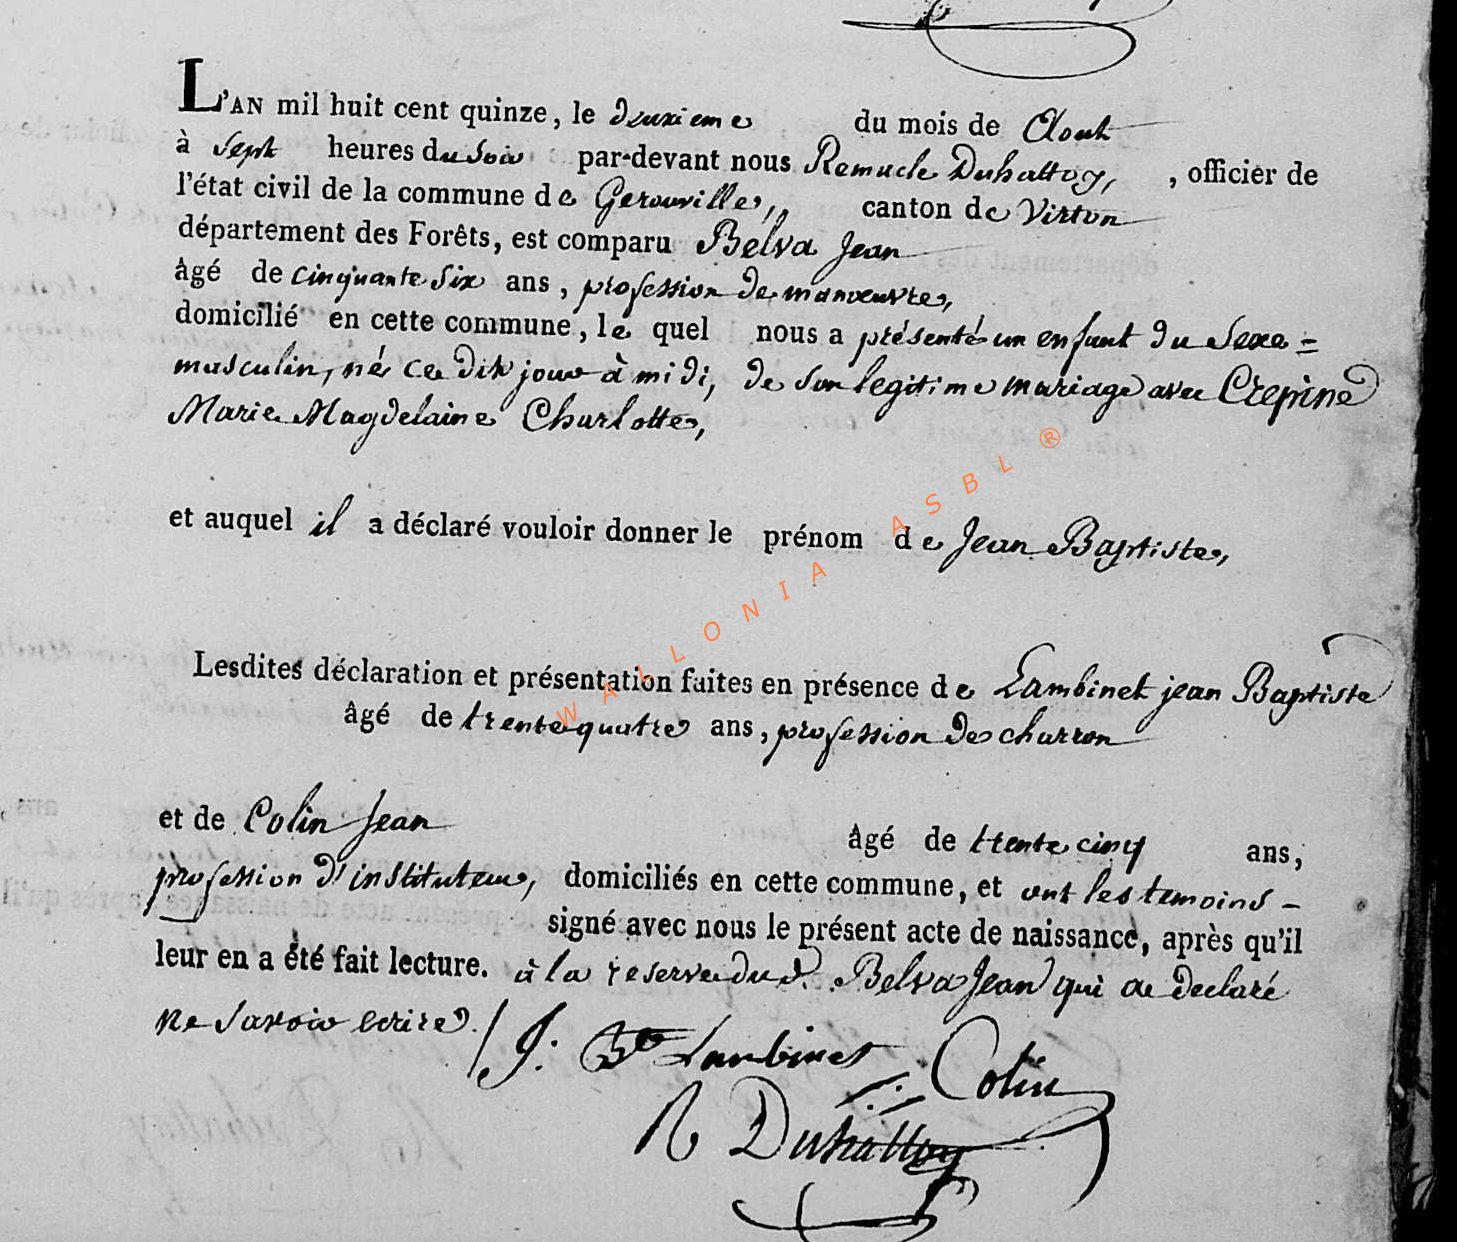 L'AN mil huit cent quinze, le deuxieme du mois de Aout
à sept heures du soir par-devant nous Remacle Duhattoy, , officier de
l'état civil de la commune de Gerouville, canton de Virton
département des Forêts, est comparu Belva Jean
âgé de cinquante six ans, profession de manoeuvre,
domicilié en cette commune, le quel nous a présenté un enfant du sexe =
masculin, né ce dit jour à midi, de son legitime mariage avec Crepine
Marie Magdelaine Charlotte,
et auquel il a déclaré vouloir donner le prénom de Jean Baptiste,
Lesdites déclaration et présentation faites en présence de Lambinet jean Baptiste
âgé de trente quatre ans, profession de charron
et de Colin Jean âgé de trente cinq ans,
profession d'instituteur, domiciliés en cette commune, et ont les temoins -
signé avec nous le présent acte de naissance, après qu'il
leur en a été fait lecture. à la reserve dud. Belva Jean qui a declaré
ne savoir ecrire. /
J: Bte Lambinet Colin
R Duhattoy
WALLONIA ASBL ®